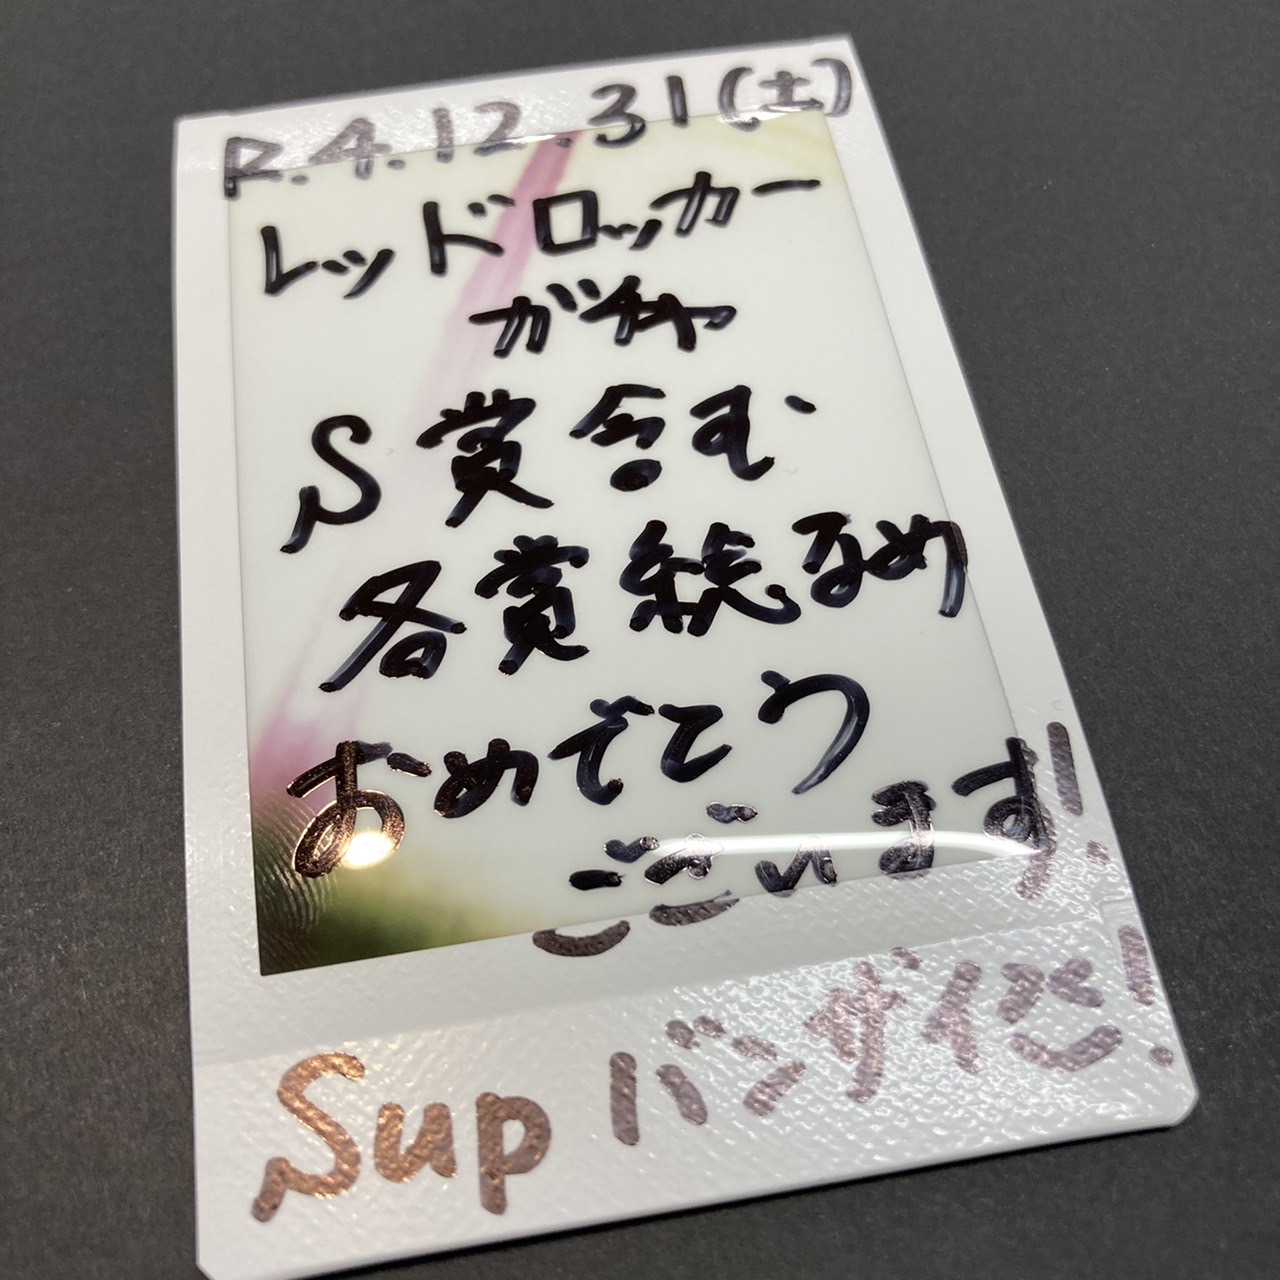 R.4.12.31(土)
レッドロッカー
ガチャ
S賞含む
各賞総なめ
おめでとう
ございます!
Sup バンザイ!